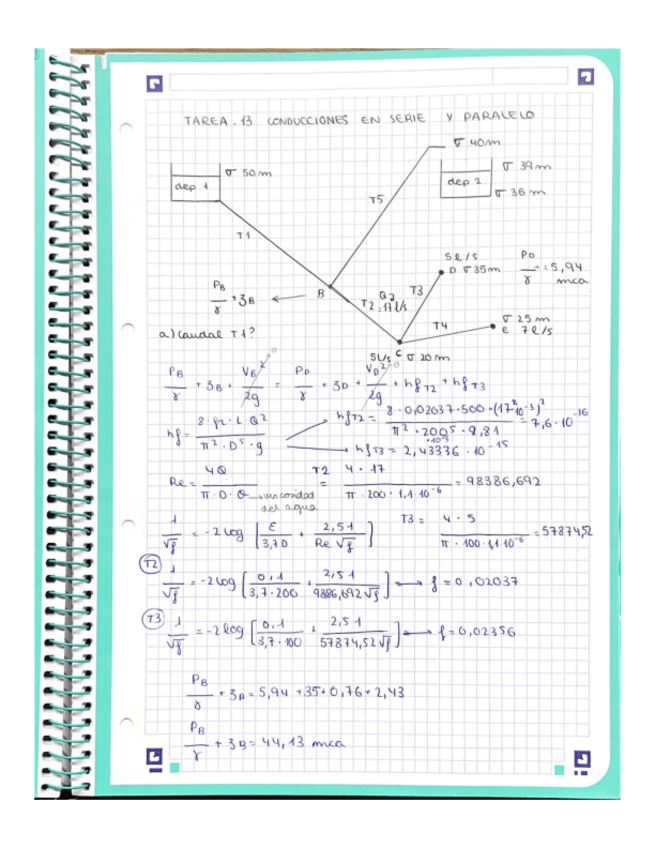 TAREA.13 CONDUCCIONES EN SERIE Y PARALELO
∇ 40m
∇ 50m
∇ 39m
dep 1
dep 2
∇ 36m
T5
T1
5l/s
P_D/γ = 5,94 mca
D ∇ 35m
P_B/γ + z_B
B
T2
Q_2 = 17l/s
T3
T4
∇ 25m
E 7l/s
a) Caudal T1?
5l/s C ∇ 20m
P_B/γ + z_B + V_B²/2g = P_D/γ + z_D + V_D²/2g + hf_T2 + hf_T3
0
0
hf = 8·f·L·Q²/π²·D⁵·g
hf_T2 = 8·0,02037·500·(17·10⁻³)²/π²·200⁵·9,81 = 7,6·10⁻¹⁶
hf_T3 = 2,43336·10⁻¹⁵
Re = 4Q/π·D·υ
viscosidad del agua
T2 = 4·17/π·200·1,1·10⁻⁶ = 98386,692
1/√f = -2log [ε/3,7D + 2,51/Re√f]
T3 = 4·5/π·100·1,1·10⁻⁶ = 57874,52
T2 1/√f = -2log [0,1/3,7·200 + 2,51/9386,692√f] → f = 0,02037
T3 1/√f = -2log [0,1/3,7·100 + 2,51/57874,52√f] → f = 0,02356
P_B/γ + z_B = 5,94 + 35 + 0,76 + 2,43
P_B/γ + z_B = 44,13 mca